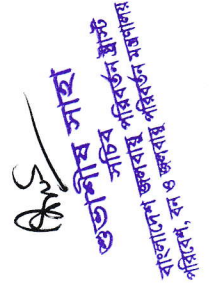 সাহা
সচিব
বাংলাদেশ জলবায়ু পরিবর্তন ট্রাস্ট
পরিবেশ, বন ও জলবায়ু পরিবর্তন মন্ত্রণালয়